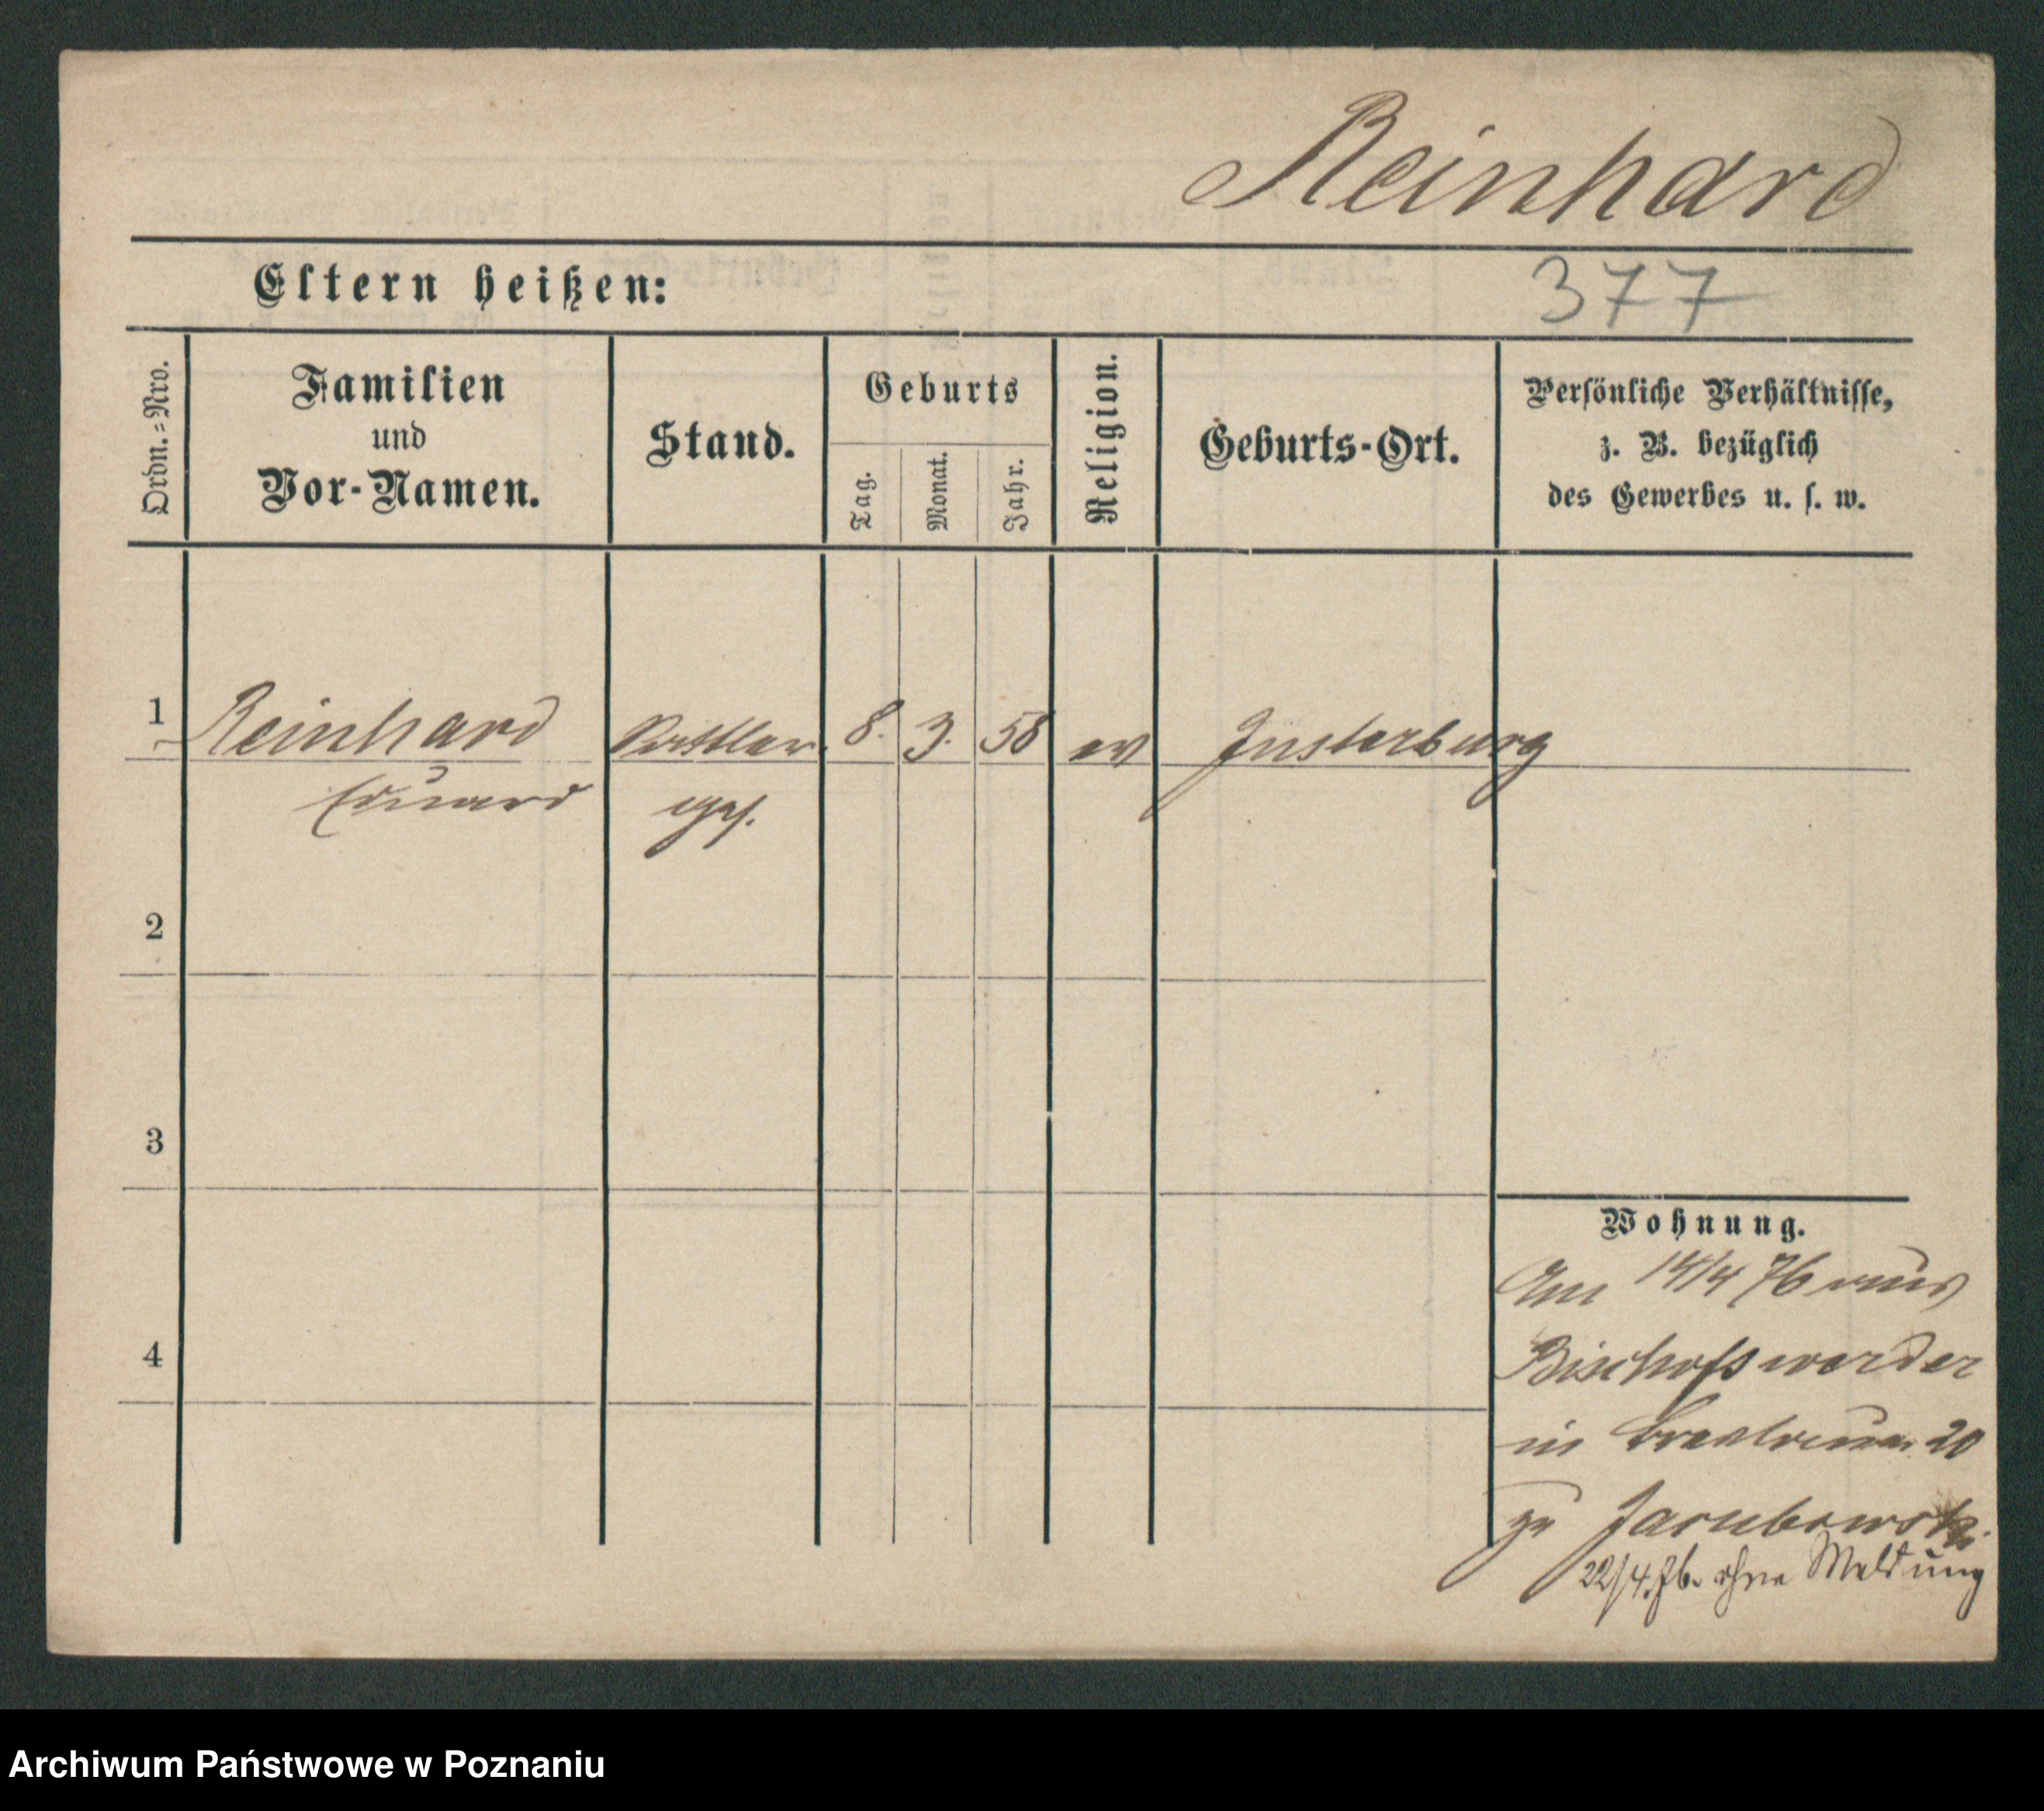 Reinhard
Eltern heißen:
377
Ordn.=Nro.
Familien
und
Vor-Namen.
Stand.
Geburts
Tag.
Monat.
Jahr.
Religion.
Geburts-Ort.
Persönliche Verhältnisse,
z. B. bezüglich
des Gewerbes u. s. w.
1 Reinhard Sattler 8. 3. 58 ev Insterburg
Eduard
2
3
4
Wohnung.
14/4 76 aus
Bischofswerder
in 20
zu
22/4.76. ohne Meldung
Archiwum Państwowe w Poznaniu